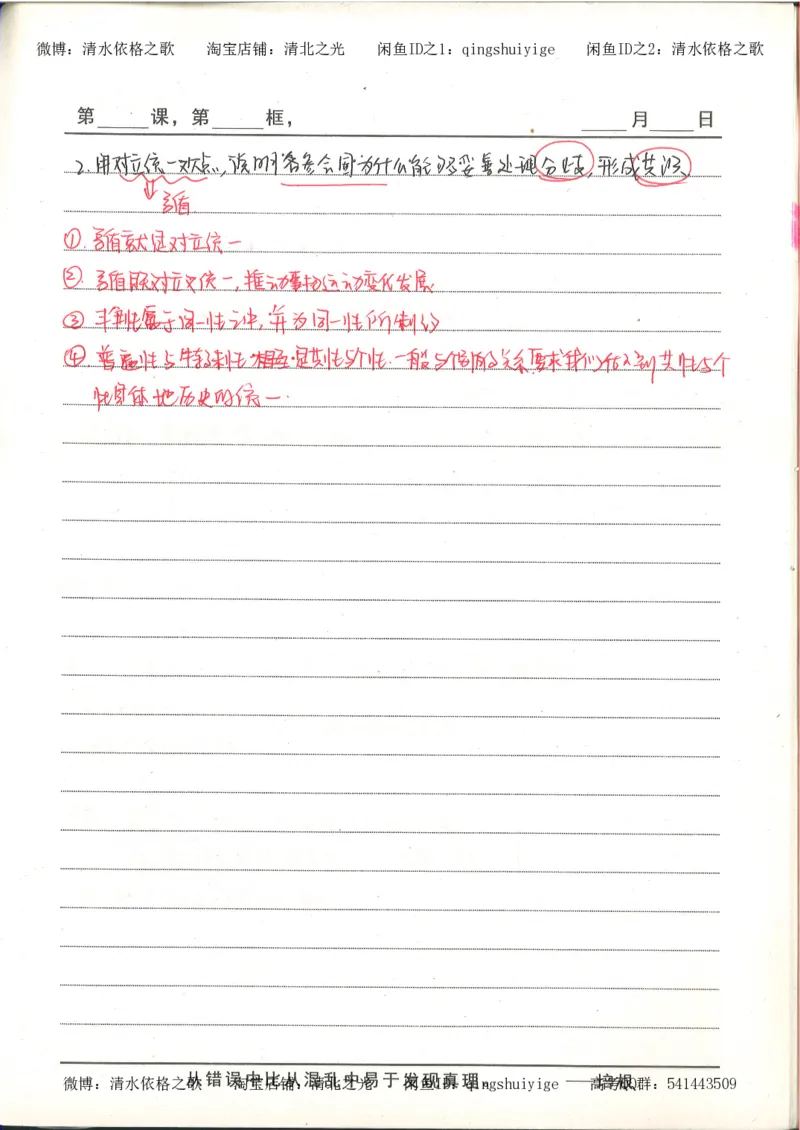 微博：清水依格之歌 淘宝店铺：清北之光 闲鱼ID之1：qingshuiyige 闲鱼ID之2：清水依格之歌
第____课，第____框， ____月____日
2.用对立统一观点，说明筹委会间为什么能够妥善处理分歧，形成共识
矛盾
①.矛盾就是对立统一
②.矛盾既对立又统一，推动事物运动变化发展
③ 斗争性寓于同一性之中，并为同一性所制约
④.普遍性与特殊性相互是共性与个性.一般与个别的关系要求我们 到共性与个
性具体地历史的统一.
从错误中比从混乱中易于发现真理。 ——培根
微博：清水依格之歌 淘宝店铺：清北之光 闲鱼ID之1：qingshuiyige 高考QQ群：541443509